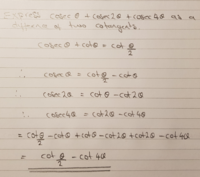 Express cosec θ + cosec 2θ + cosec 4θ as a
difference of two cotangents.
cosec θ + cot θ = cot θ/2
∴ cosec θ = cot θ/2 - cot θ
∴ cosec 2θ = cot θ - cot 2θ
∴ cosec 4θ = cot 2θ - cot 4θ
= cot θ/2 - cot θ + cot θ - cot 2θ + cot 2θ - cot 4θ
= cot θ/2 - cot 4θ